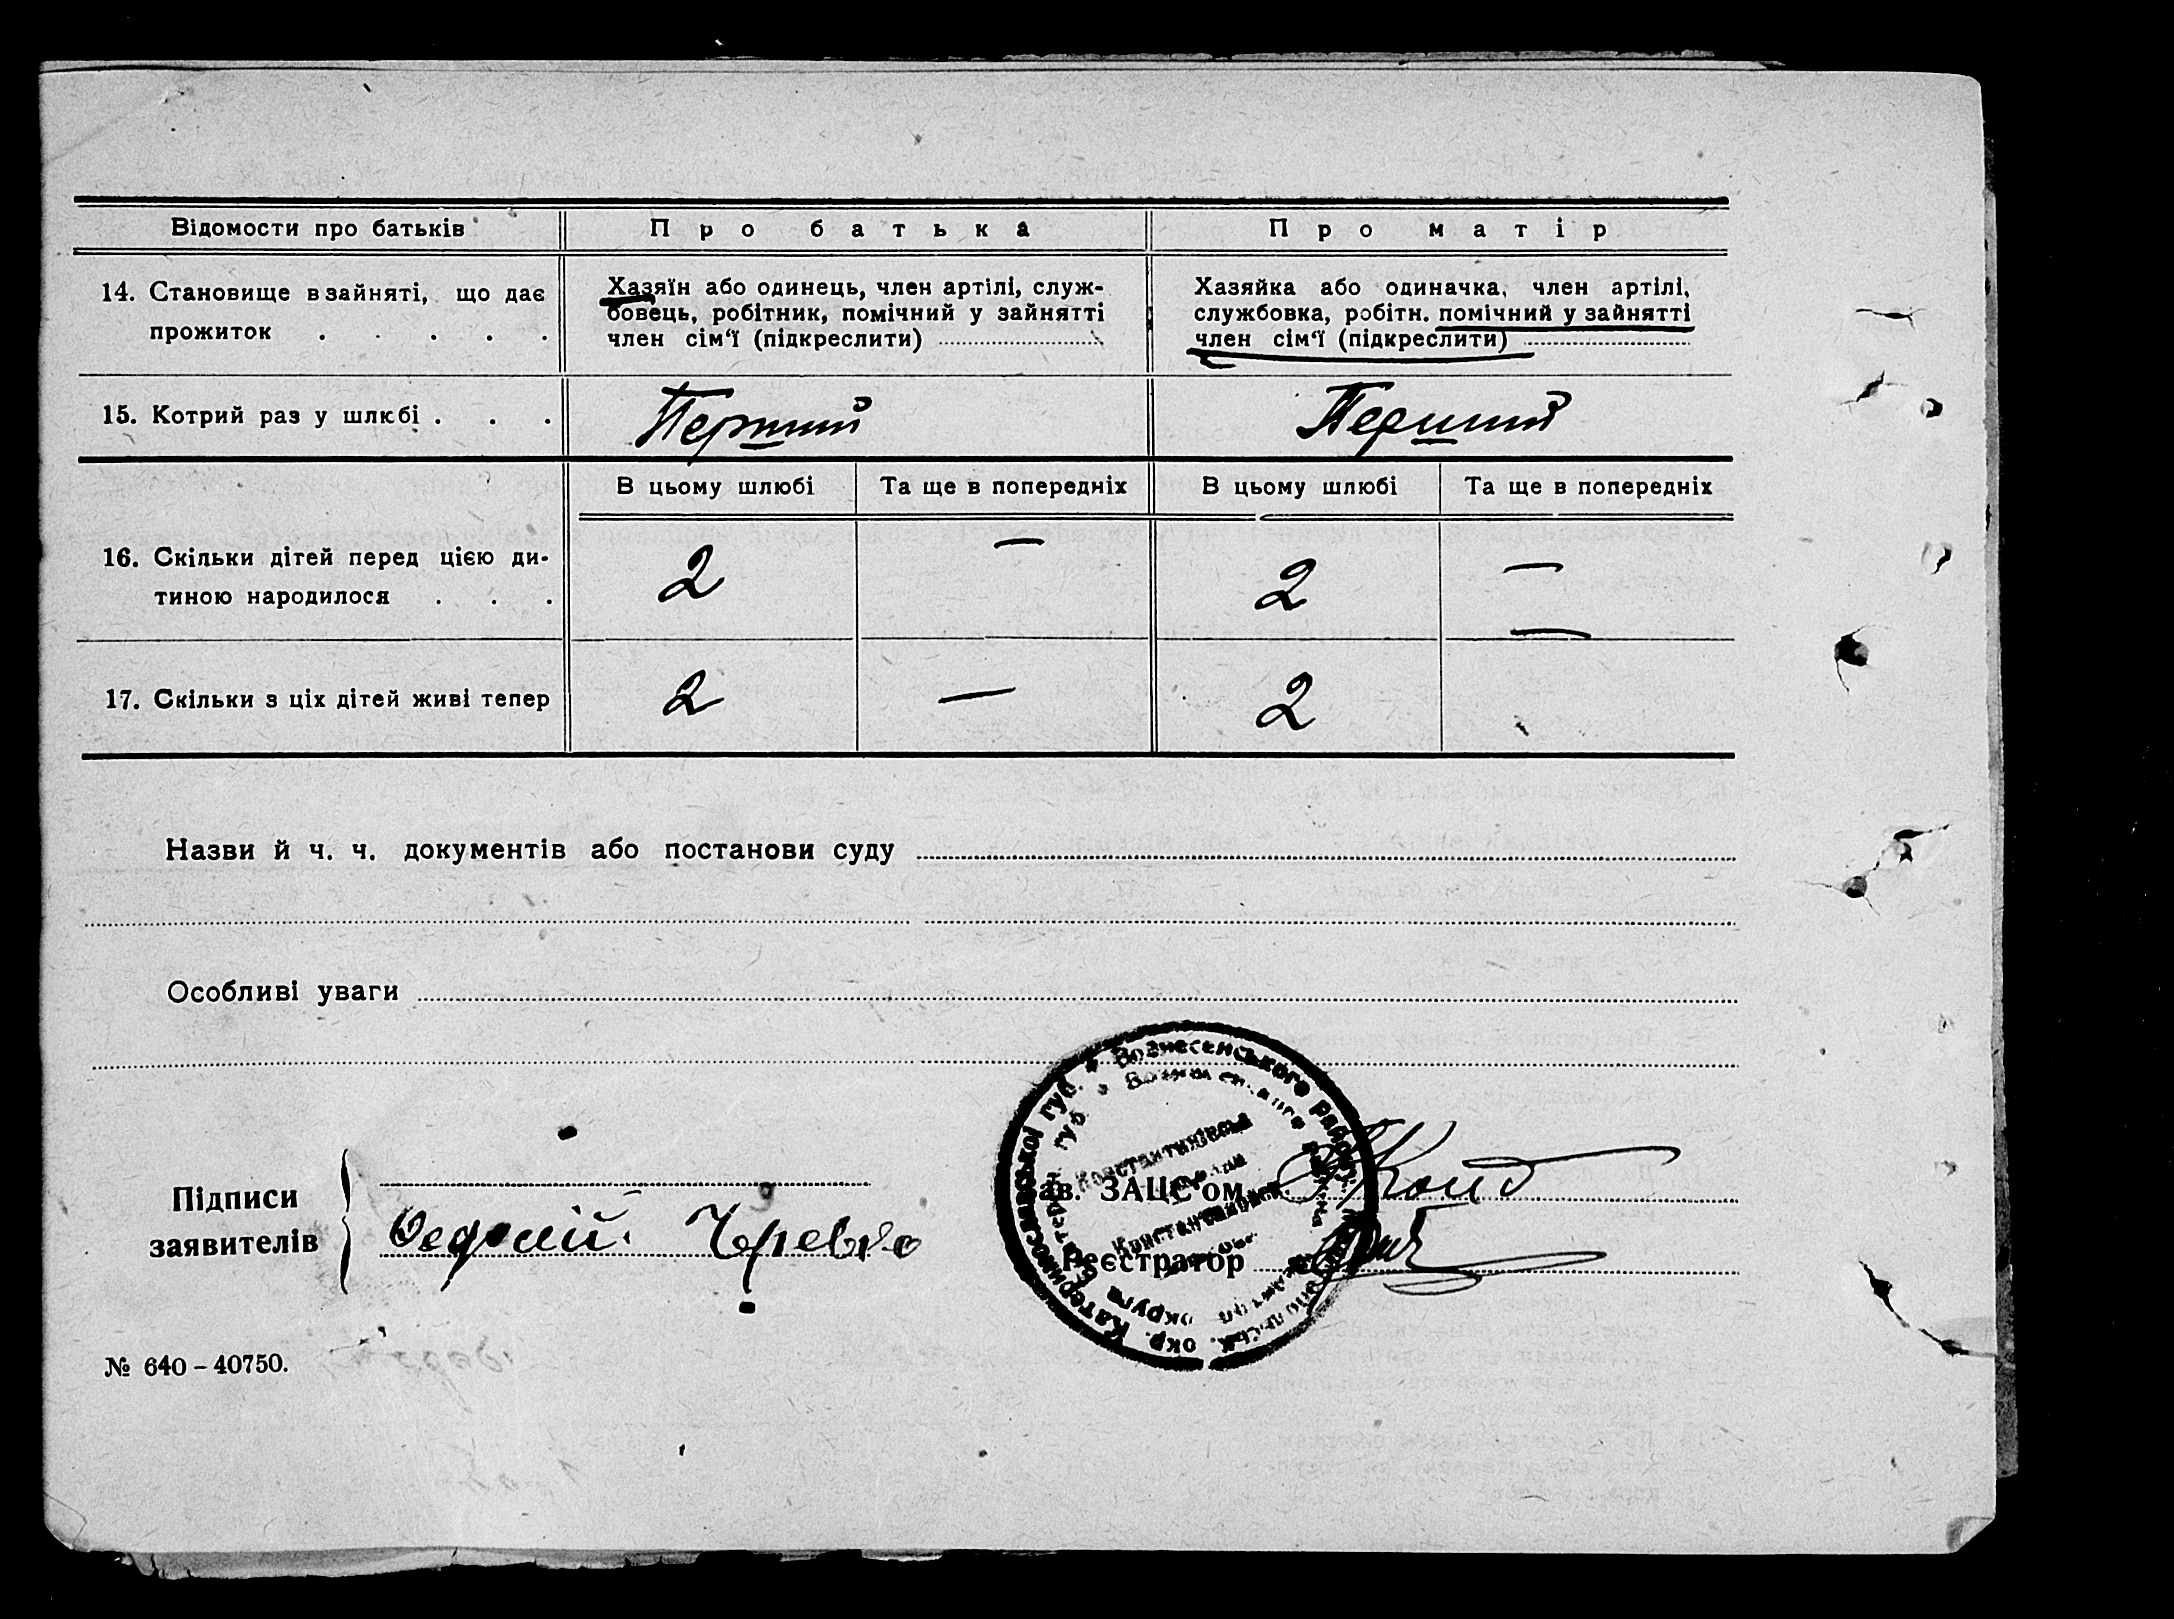 Відомости про батьків
Про батька
Про матір
14. Становище в зайняті, що дає
прожиток . . . . .
Хазяїн або одинець, член артілі, служ-
бовець, робітник, помічний у зайнятті
член сім‘ї (підкреслити)
Хазяйка або одиначка, член артілі,
службовка, робітн. помічний у зайнятті
член сім‘ї (підкреслити)
15. Котрий раз у шлюбі . . .
Перший
Перший
В цьому шлюбі
Та ще в попередніх
В цьому шлюбі
Та ще в попередніх
16. Скільки дітей перед цією ди-
тиною народилося . . .
2
—
2
—
17. Скільки з ціх дітей живі тепер
2
—
2
—
Назви й ч. ч. документів або постанови суду
Особливі уваги
Підписи
заявителів
Черевко
ав. ЗАЦС'ом
Реєстратор
Катеринославської губ. * Вознесенського району
окр.
округа
Константинівська
№ 640 – 40750.